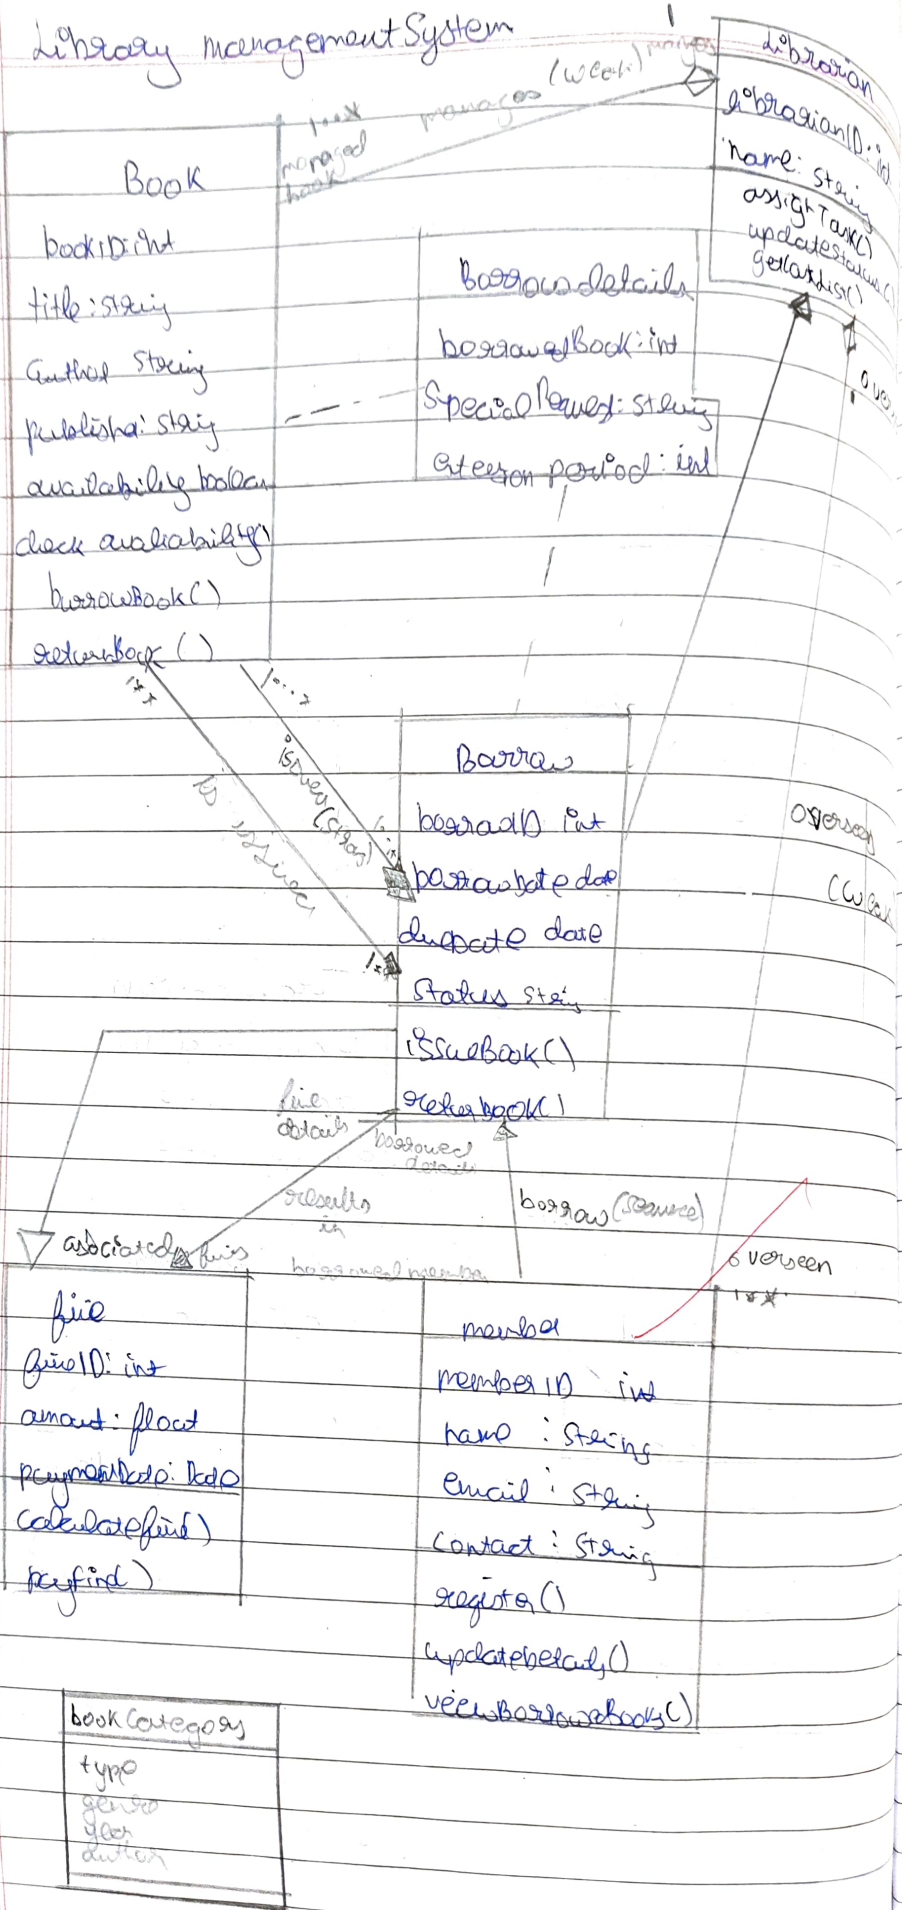 Library management System
1
Librarian
librarianID: int
name: string
assignTask()
updatestatus()
manages (weak)
1..*
managed
book
Book
bookID: int
title: string
author string
publisher: string
availability boolean
check avaliability()
burrowBook()
returnBook ()
Borrowdetails
borrowedBook: int
Special Request: string
1**
1...*
issued (strong)
is issued
1..*
1**
Borrow
borrowID int
borrowdate date
duedate date
Status string
issueBook()
returnBook()
overseen
(weak
fine
details
borrowed
details
results
in
borrow
asociated
fines
borrowed member
overseen
1**
fine
fineID: int
amount: float
paymentDate: Date
calculatefine()
payfine()
member
memberID int
name : string
email : string
contact : string
register()
updatedetails()
veiwBorrowedBooks()
bookCategory
type
genre
year
author